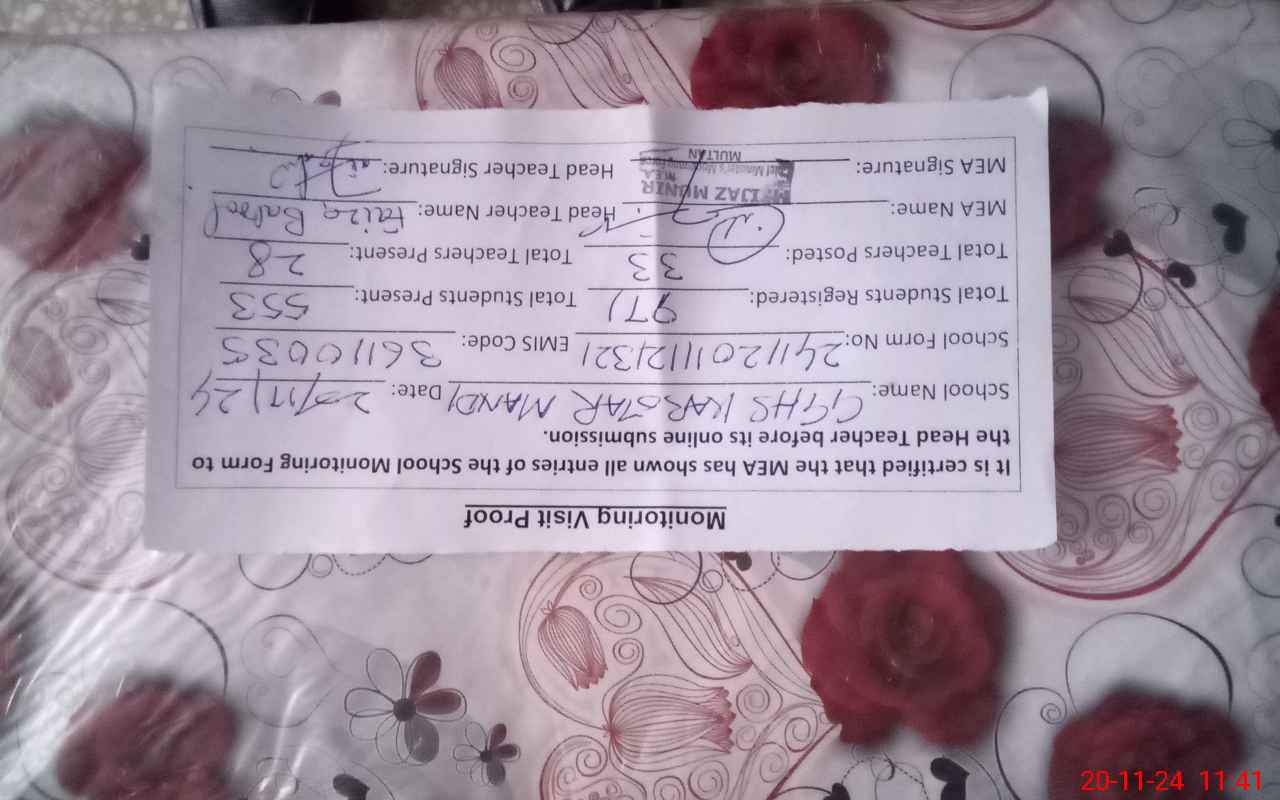 Monitoring Visit Proof
It is certified that the MEA has shown all entries of the School Monitoring Form to
the Head Teacher before its online submission.
School Name: GGHS KAROTAR MANDI Date: 20/11/24
School Form No: 241120111121321 EMIS Code: 36110035
Total Students Registered: 971 Total Students Present: 553
Total Teachers Posted: 33 Total Teachers Present: 28
MEA Name: Head Teacher Name: Faiza Batool
MEA Signature: Head Teacher Signature:
IJAZ MUNIR
MEA
Chief Minister's Monitoring Force
MULTAN
20-11-24 11:41